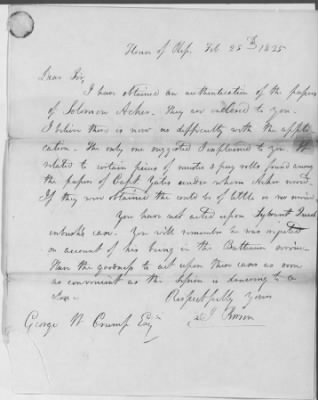 House of Rep. Feb 25th 1825
Dear Sir,
I have obtained an authentication of the papers
of Solomon Acker. They are inclosed to you.
I believe there is now no difficulty with the appli-
cation. The only one suggested I explained to you. It
related to certain pieces of muster & pay rolls found among
the papers of Capt. Yates under whom Acker served.
If they were obtained they could be of little or no service.
You have not acted upon Sybrant
case. You will remember he was rejected
on account of his being in the Batteau service.
Have the goodness to act upon these cases as soon
as convenient as the session is drawing to a
close.
Respectfully Yours
George W Crump Esq